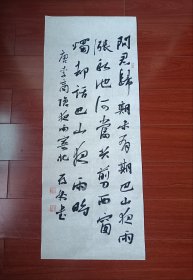 問君歸期未有期巴山夜雨
漲秋池何當共剪西窗
燭却話巴山夜雨時
唐李商隱夜雨寄北